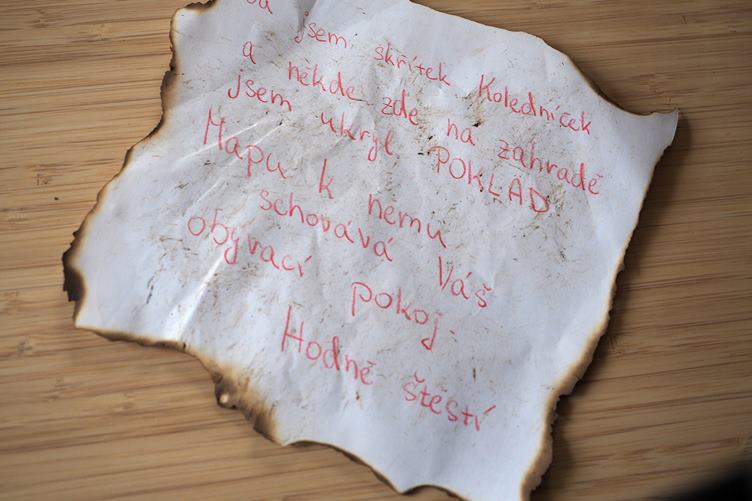 Já jsem skřítek Koledníček
a někde zde na zahradě
jsem ukryl POKLAD
Mapu k němu
schovává Váš
obývací pokoj.
Hodně štěstí